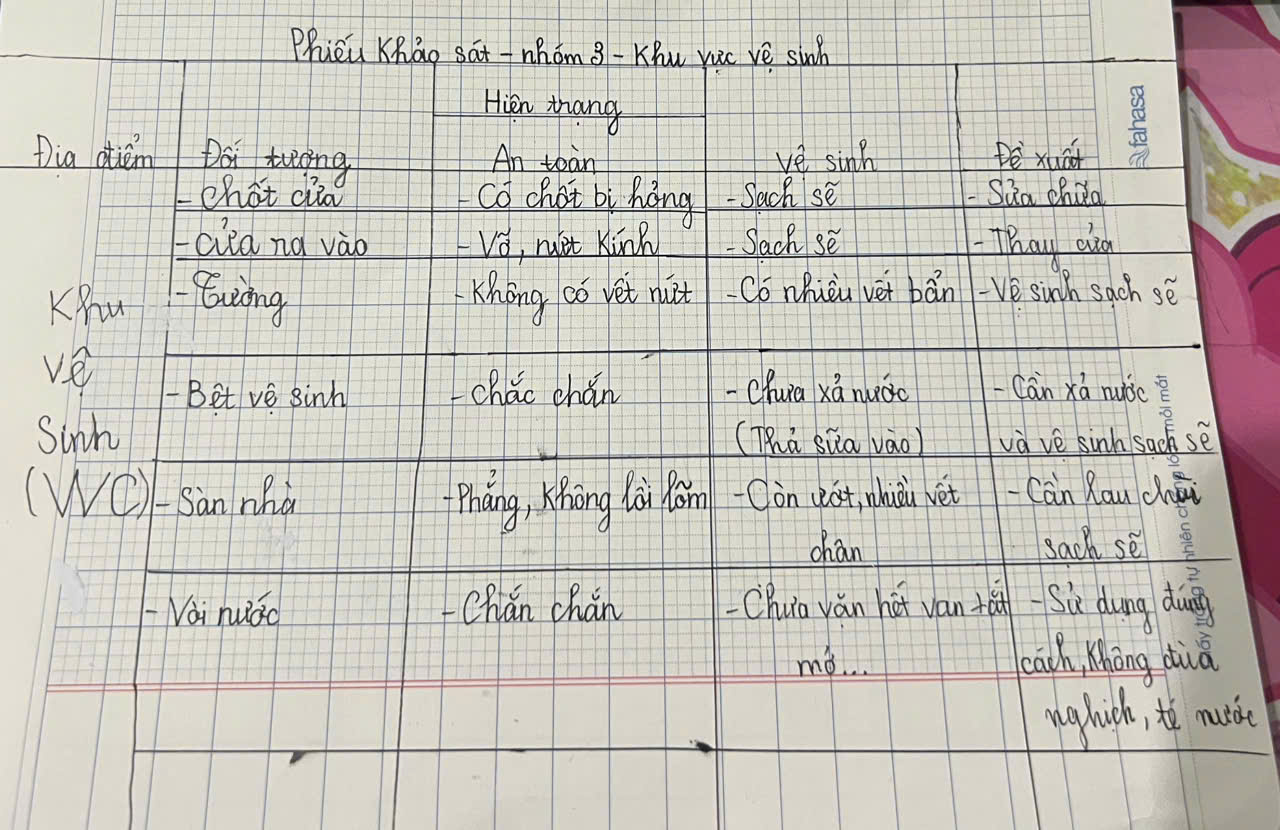 Phiếu Khảo sát - nhóm 3 - Khu vực vệ sinh
Hiện trạng
Địa điểm Đối tượng An toàn Vệ sinh Đề xuất
- chốt cửa - Có chốt bị hỏng - Sạch sẽ - Sửa chữa
- cửa ra vào - Vỡ, nứt Kính - Sạch sẽ - Thay cửa
Khu - Tường - Không có vết nứt - Có nhiều vết bẩn - Vệ sinh sạch sẽ
vệ - Bệt vệ sinh - chắc chắn - Chưa xả nước - Cần xả nước
Sinh (Thả sữa vào) và vệ sinh sạch sẽ
(WC) - Sàn nhà - Phẳng, không lồi lõm - Còn ướt, nhiều vết - Cần lau chùi
chân sạch sẽ
- Vòi nước - Chắn chắn - Chưa vặn hết van tắt - Sử dụng đúng
mở... cách, không đùa
nghịch, té nước
fahasa
mỏi mắt
tự nhiên chống